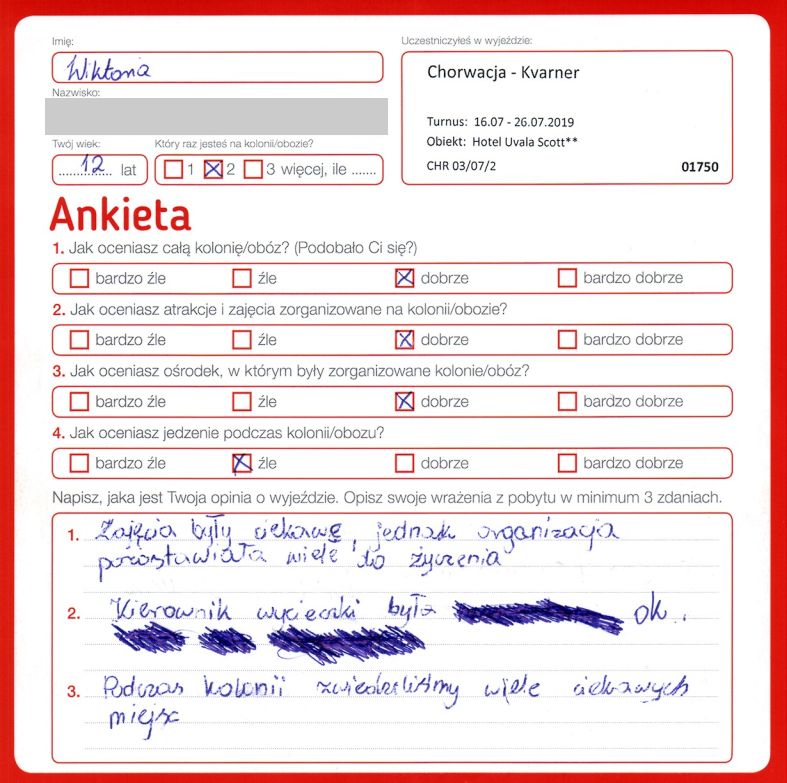 Imię:
Wiktoria
Nazwisko:
Uczestniczyłeś w wyjeździe:
Chorwacja - Kvarner
Turnus: 16.07 - 26.07.2019
Obiekt: Hotel Uvala Scott**
CHR 03/07/2 01750
Twój wiek:
12 lat
Który raz jesteś na kolonii/obozie?
1 2 3 więcej, ile .......
Ankieta
1. Jak oceniasz całą kolonię/obóz? (Podobało Ci się?)
bardzo źle źle dobrze bardzo dobrze
2. Jak oceniasz atrakcje i zajęcia zorganizowane na kolonii/obozie?
bardzo źle źle dobrze bardzo dobrze
3. Jak oceniasz ośrodek, w którym były zorganizowane kolonie/obóz?
bardzo źle źle dobrze bardzo dobrze
4. Jak oceniasz jedzenie podczas kolonii/obozu?
bardzo źle źle dobrze bardzo dobrze
Napisz, jaka jest Twoja opinia o wyjeździe. Opisz swoje wrażenia z pobytu w minimum 3 zdaniach.
1. Zajęcia były ciekawe, jednak organizacja
pozostawiała wiele do życzenia
2. Kierownik wycieczki była ok.
3. Podczas kolonii zwiedziliśmy wiele ciekawych
miejsc